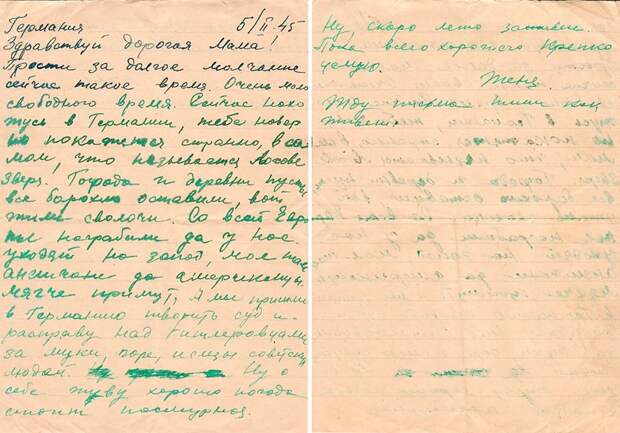 Германия 5/II-45
Здравствуй дорогая Мама!
Прости за долгое молчание
сейчас такое время. Очень мало
свободного время. Сейчас нахо
тусь в Германии, тебе навер
но покажется странно, в са
мом, что называется логове
зверя. Города и деревни пусты
все барахло оставили, вот
тими сволочи. Со всей Евро
пы награбили да у нас.
уходят на запад, мол там
англичани да американцы
мягче примут, А мы пришли
в Германию творить суд и
расправу над гитлеровцами
за муки, горе, и слезы советских
людей. Ну о
себе живу хорошо погода
стоит пасмурная.
Ну, скоро лето
Пока всего хорошего Крепко
целую.
Женя.
Жду письма пиши как